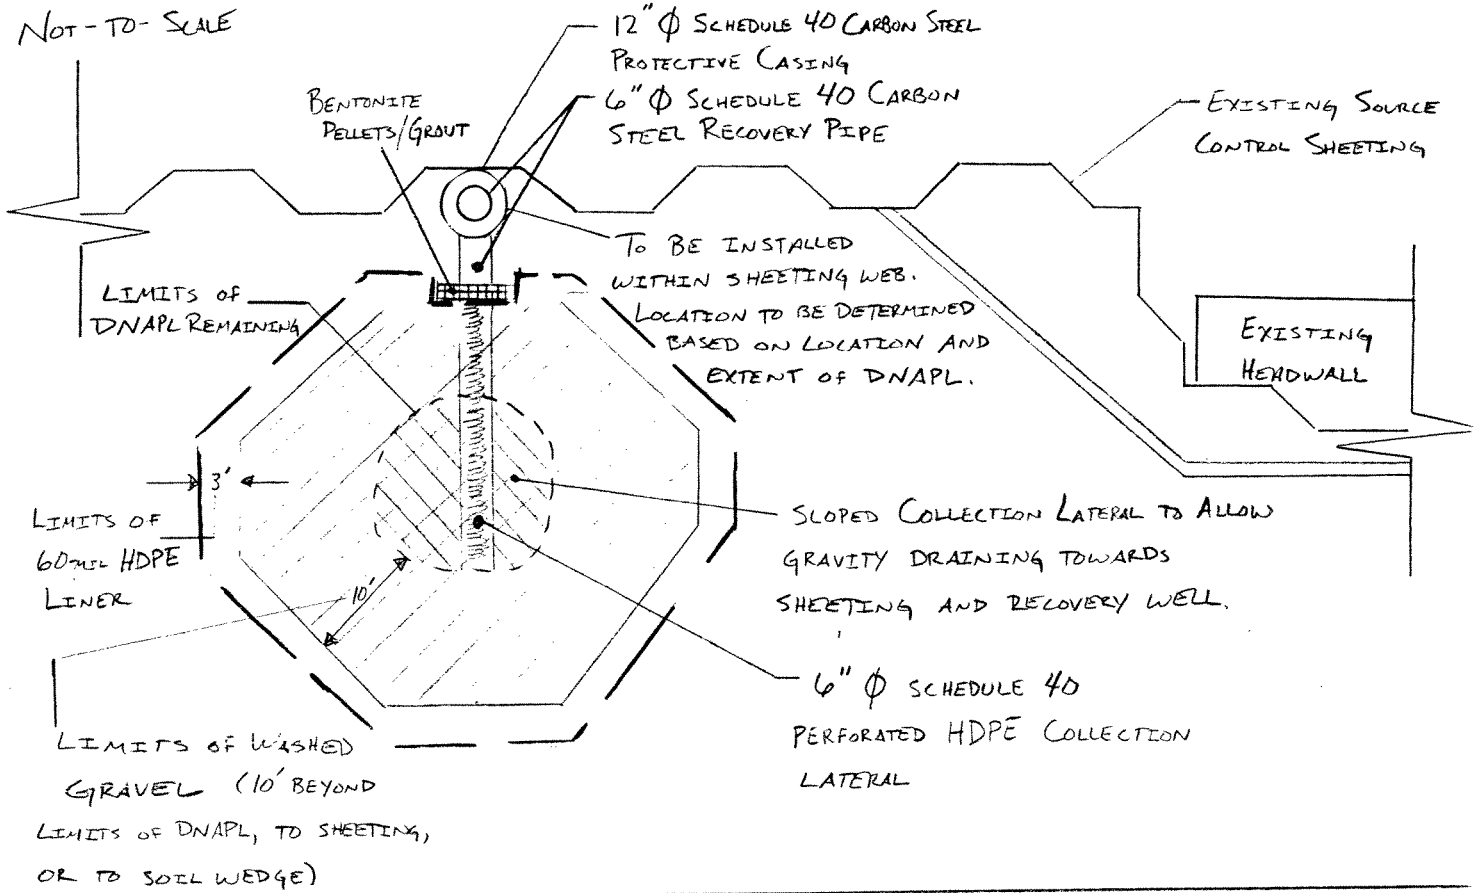 NOT-TO-SCALE
12" Ø SCHEDULE 40 CARBON STEEL
PROTECTIVE CASING
6" Ø SCHEDULE 40 CARBON
STEEL RECOVERY PIPE
BENTONITE
PELLETS/GROUT
EXISTING SOURCE
CONTROL SHEETING
TO BE INSTALLED
WITHIN SHEETING WEB.
LOCATION TO BE DETERMINED
BASED ON LOCATION AND
EXTENT OF DNAPL.
LIMITS OF
DNAPL REMAINING
EXISTING
HEADWALL
3'
LIMITS OF
60 MIL HDPE
LINER
10'
SLOPED COLLECTION LATERAL TO ALLOW
GRAVITY DRAINING TOWARDS
SHEETING AND RECOVERY WELL.
6" Ø SCHEDULE 40
PERFORATED HDPE COLLECTION
LATERAL
LIMITS OF WASHED
GRAVEL (10' BEYOND
LIMITS OF DNAPL, TO SHEETING,
OR TO SOIL WEDGE)